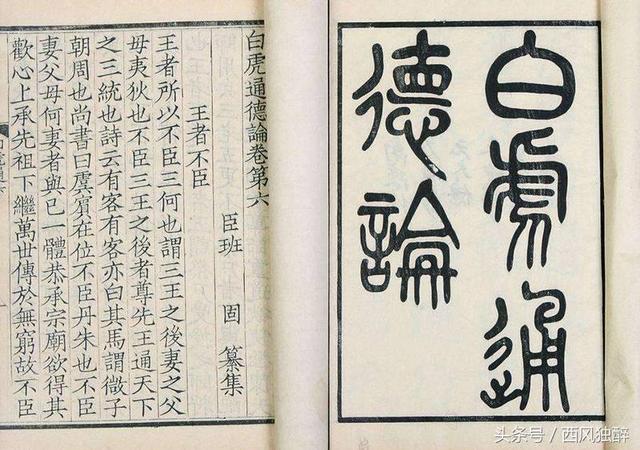 白虎通
德論
白虎通德論卷第六
臣班 固 纂集
王者不臣
王者所以不臣三何也謂三王之後妻之父
母夷狄也不臣三王之後者尊先王通天下
之三統也詩云有客有客亦白其馬謂微子
朝周也尚書曰虞賓在位不臣丹朱也不臣
妻父母何妻者與己一體恭承宗廟欲得其
歡心上承先祖下繼萬世傳於無窮故不臣
头条号／西风独醉